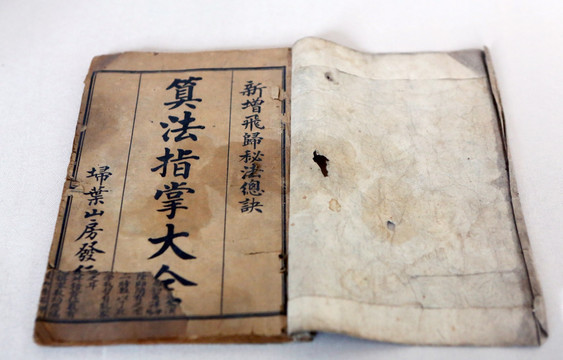 新增飛歸秘法總訣
算法指掌大全
埽葉山房發行